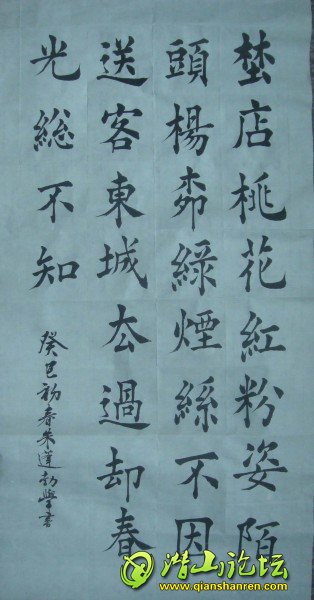 埜店桃花紅粉姿陌
頭楊桺綠煙絲不因
送客東城厺過却春
光緫不知
癸巳初春朱學書
潜山论坛
www.qianshanren.com